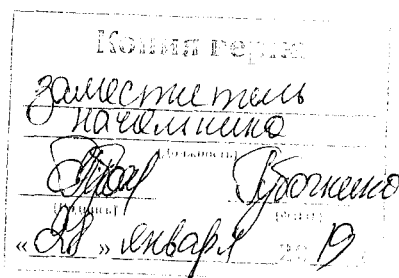 Копия верна
заместитель
начальника
(должность)
(подпись)
«28» января 20 19